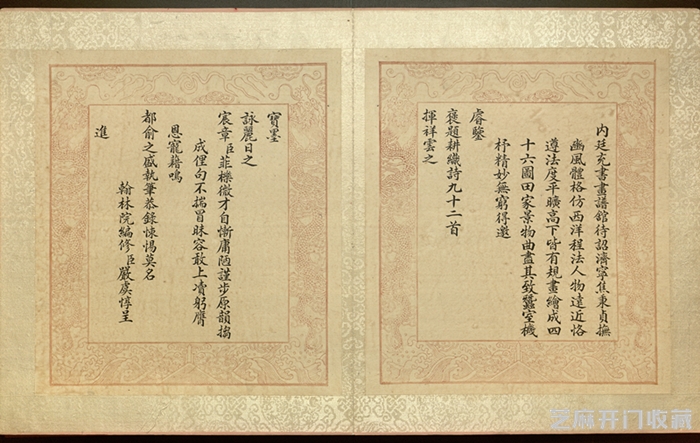 內廷充書畫譜館待詔濟寧焦秉貞撫
豳風體格仿西洋程法人物遠近恪
遵法度平曠高下皆有規畫繪成四
十六圖田家景物曲盡其致蠶室機
杼精妙無窮得邀
睿鑒
褒題耕織詩九十二首
揮祥雲之
寶墨
詠麗日之
宸章臣菲櫟微才自慚庸陋謹步原韻搊
成俚句不揣冒昧容敢上凟躬膺
恩寵藉鳴
都俞之盛執筆恭錄悚惕莫名
翰林院編修臣嚴虞惇呈
進
芝麻开门收藏